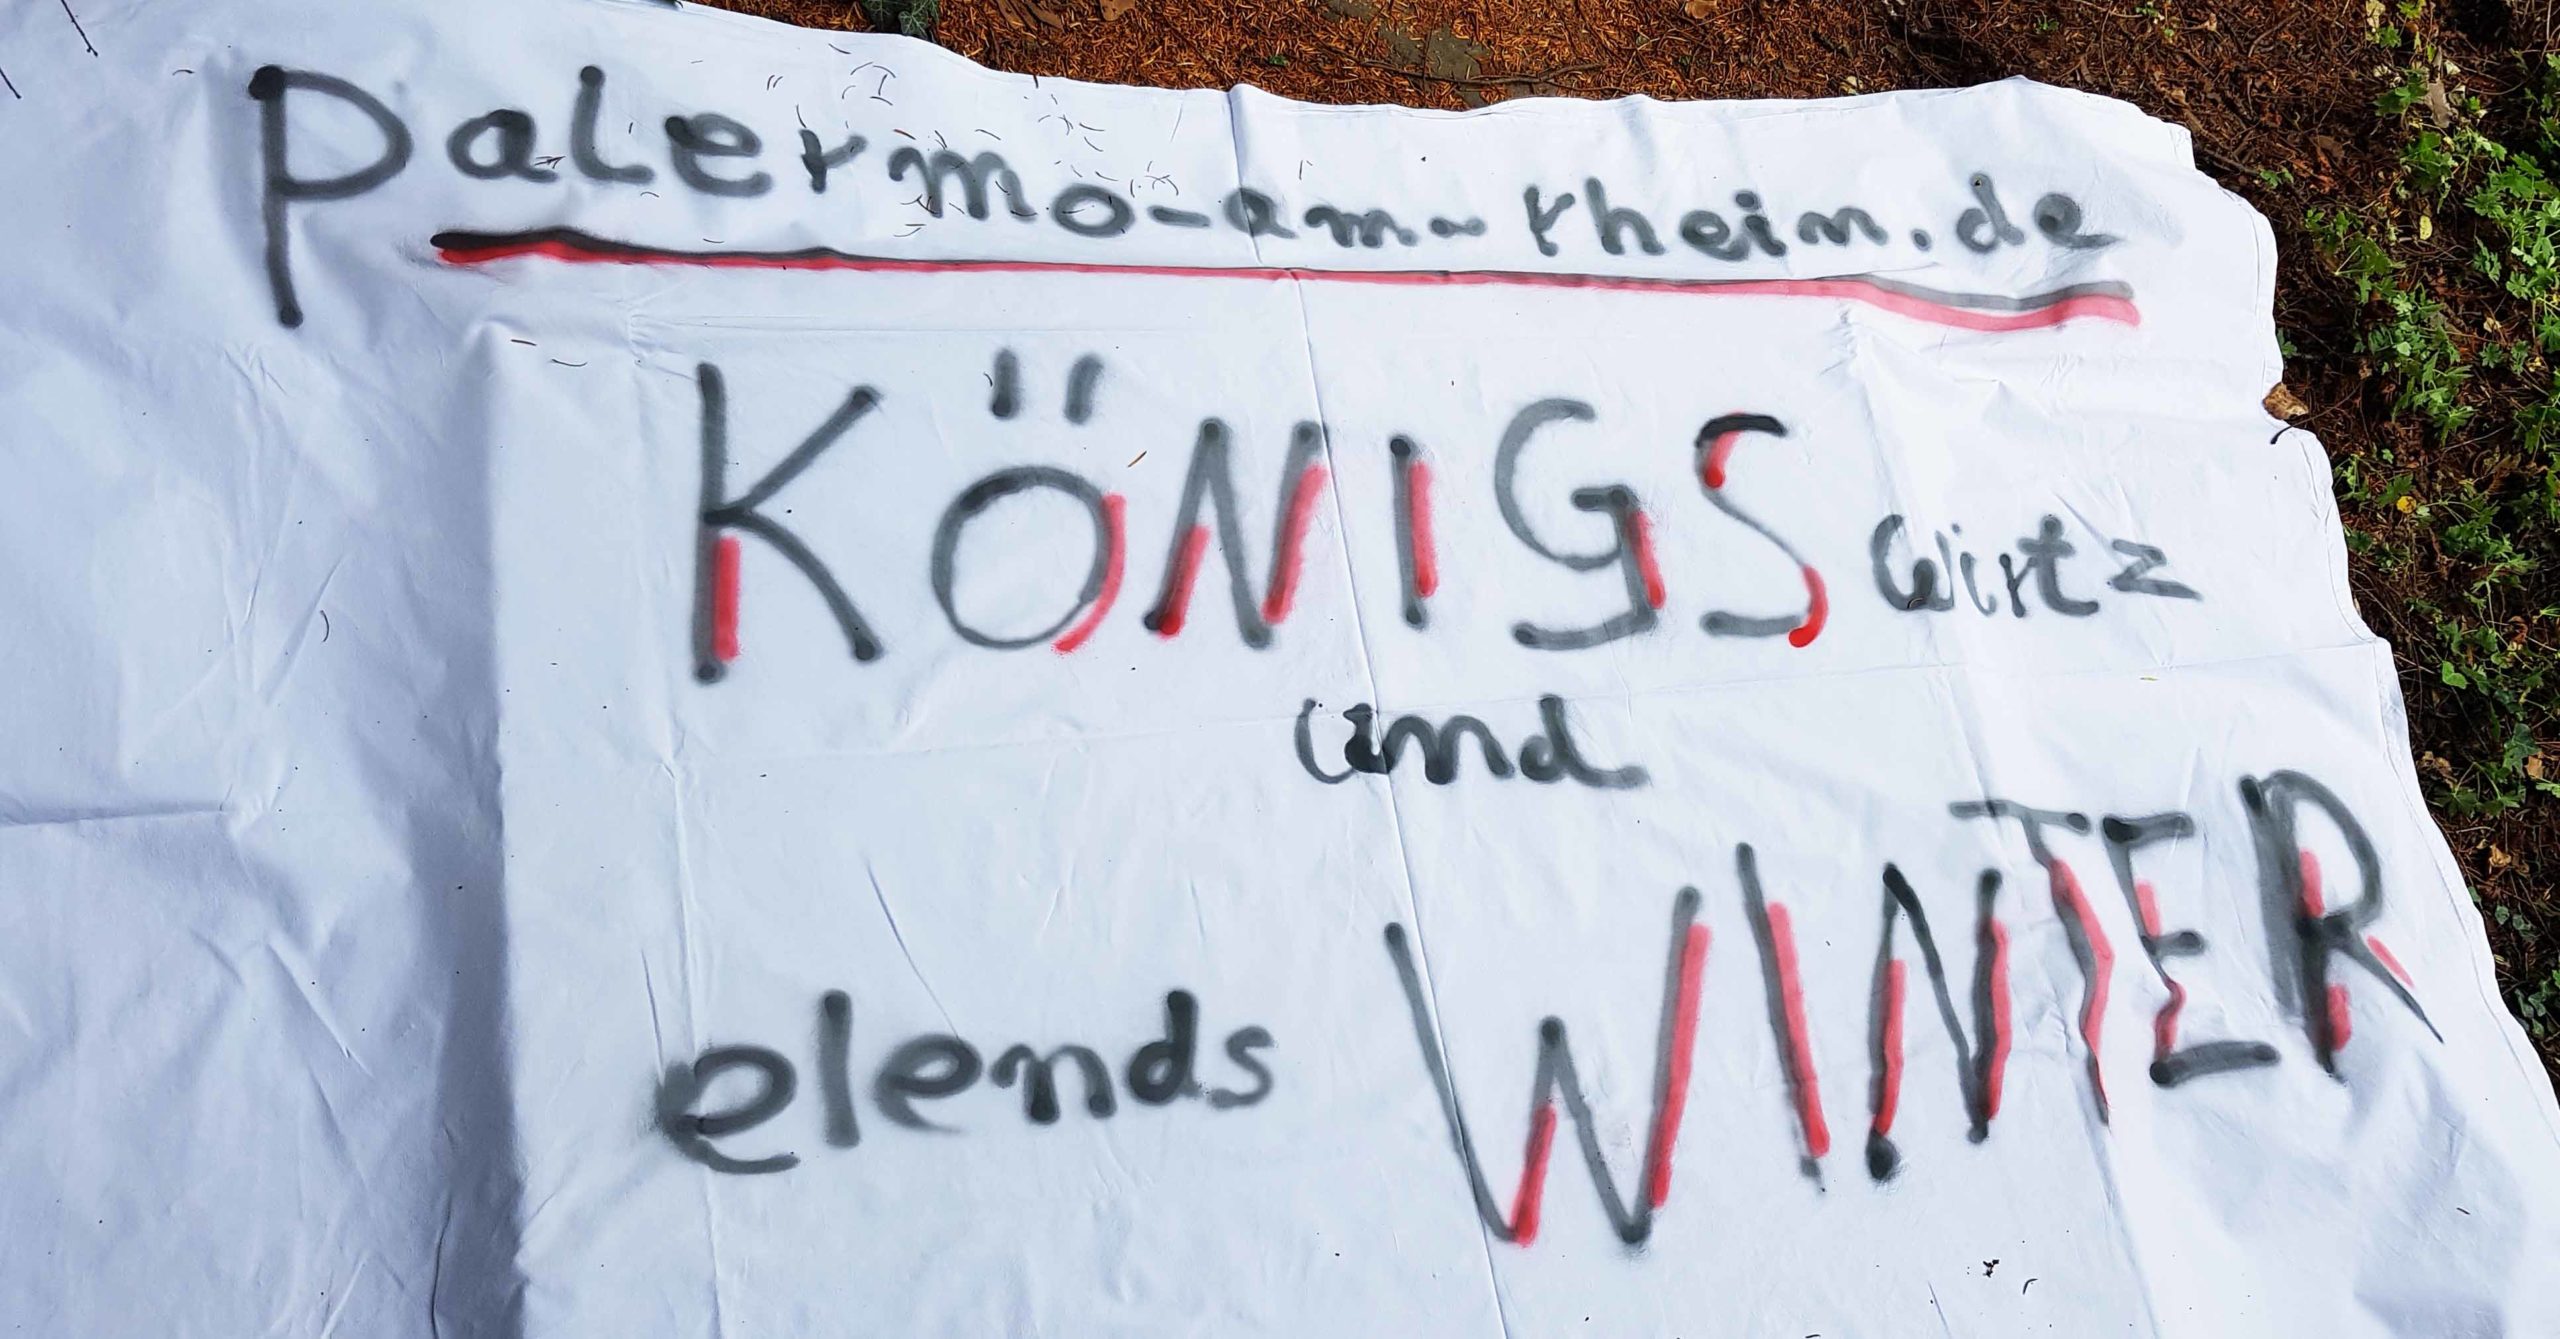 palermo-am-rhein.de
KÖNIGSwirtz
und
elendsWINTER